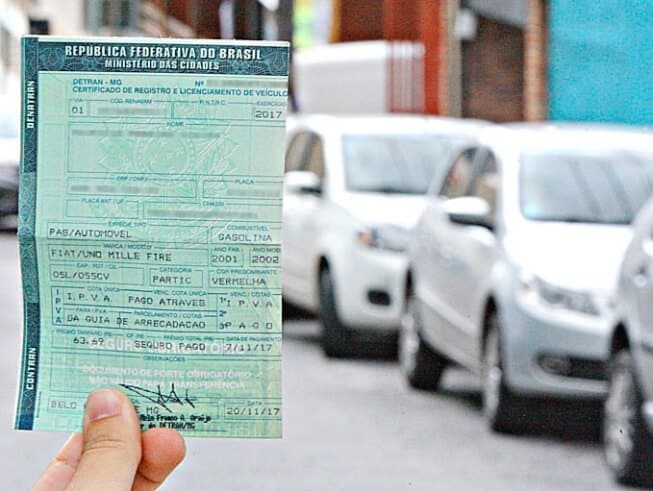 REPÚBLICA FEDERATIVA DO BRASIL
MINISTÉRIO DAS CIDADES
DETRAN - MG Nº
CERTIFICADO DE REGISTRO E LICENCIAMENTO DE VEÍCULO
VIA CÓD. RENAVAM R.N.T.R.C. EXERCÍCIO
01 2017
NOME
CPF/CNPJ PLACA
PLACA ANT/UF CHASSI
ESPÉCIE TIPO COMBUSTÍVEL
PAS/AUTOMOVEL GASOLINA
MARCA / MODELO ANO FAB. ANO MOD
FIAT/UNO MILLE FIRE 2001 2002
CAP / POT / CIL CATEGORIA COR PREDOMINANTE
05L/055CV PARTIC VERMELHA
COTA ÚNICA VENC. COTA ÚNICA VENC. / COTAS
IPVA I.P.V.A PAGO ATRAVES 1ª I.P.V.A
PARCELAMENTO / COTAS 2ª
DA GUIA DE ARRECADACAO 3ª P A G O
PRÊMIO TOTAL DATA DE PAGAMENTO
63.69 SEGURO PAGO 7/11/17
OBSERVAÇÕES
DOCUMENTO DE PORTE OBRIGATÓRIO
NÃO VÁLIDO PARA TRANSFERÊNCIA
DATA
BELO MG 20/11/17
DETRAN/MG
DENATRAN
CONTRAN